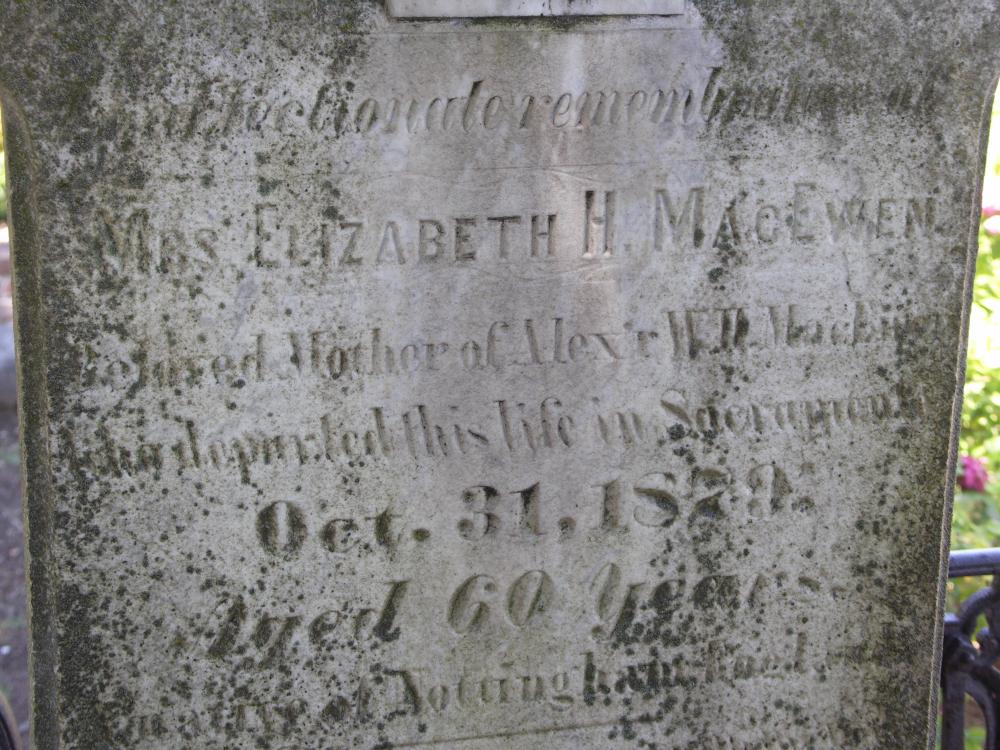 In affectionate remembrance of
MRS ELIZABETH H. MACEWEN
Beloved Mother of Alex'r W.H. MacEwen
who departed this life in Sacramento
Oct. 31, 1879.
Aged 60 Years.
a native of Nottingham, Engd.